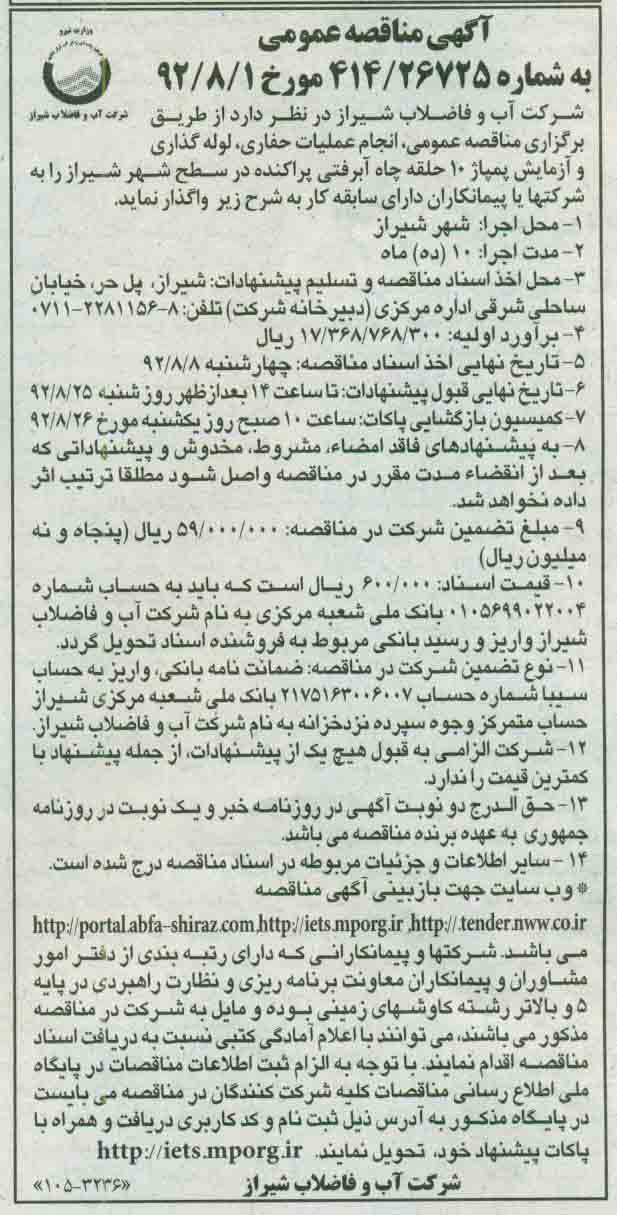 آگهی مناقصه عمومی
به شماره ۴۱۴/۲۶۷۲۵ مورخ ۹۲/۸/۱
وزارت نیرو
شرکت آب و فاضلاب شیراز
شرکت آب و فاضلاب شیراز در نظر دارد از طریق
برگزاری مناقصه عمومی، انجام عملیات حفاری، لوله گذاری
و آزمایش پمپاژ ۱۰ حلقه چاه آبرفتی پراکنده در سطح شهر شیراز را به
شرکتها یا پیمانکاران دارای سابقه کار به شرح زیر واگذار نماید.
۱- محل اجرا: شهر شیراز
۲- مدت اجرا: ۱۰ (ده) ماه
۳- محل اخذ اسناد مناقصه و تسلیم پیشنهادات: شیراز، پل حر، خیابان
ساحلی شرقی اداره مرکزی (دبیرخانه شرکت) تلفن: ۸-۲۲۸۱۱۵۶-۰۷۱۱
۴- برآورد اولیه: ۱۷/۳۶۸/۷۶۸/۳۰۰ ریال
۵- تاریخ نهایی اخذ اسناد مناقصه: چهارشنبه ۹۲/۸/۸
۶- تاریخ نهایی قبول پیشنهادات: تا ساعت ۱۴ بعدازظهر روز شنبه ۹۲/۸/۲۵
۷- کمیسیون بازگشایی پاکات: ساعت ۱۰ صبح روز یکشنبه مورخ ۹۲/۸/۲۶
۸- به پیشنهادهای فاقد امضاء، مشروط، مخدوش و پیشنهاداتی که
بعد از انقضاء مدت مقرر در مناقصه واصل شود مطلقا ترتیب اثر
داده نخواهد شد.
۹- مبلغ تضمین شرکت در مناقصه: ۵۹/۰۰۰/۰۰۰ ریال (پنجاه و نه
میلیون ریال)
۱۰- قیمت اسناد: ۶۰۰/۰۰۰ ریال است که باید به حساب شماره
۰۱۰۵۶۹۹۰۲۲۰۰۴ بانک ملی شعبه مرکزی به نام شرکت آب و فاضلاب
شیراز واریز و رسید بانکی مربوط به فروشنده اسناد تحویل گردد.
۱۱- نوع تضمین شرکت در مناقصه: ضمانت نامه بانکی، واریز به حساب
سیبا شماره حساب ۲۱۷۵۱۶۳۰۰۶۰۰۷ بانک ملی شعبه مرکزی شیراز
حساب متمرکز وجوه سپرده نزدخزانه به نام شرکت آب و فاضلاب شیراز.
۱۲- شرکت الزامی به قبول هیچ یک از پیشنهادات، از جمله پیشنهاد با
کمترین قیمت را ندارد.
۱۳- حق الدرج دو نوبت آگهی در روزنامه خبر و یک نوبت در روزنامه
جمهوری به عهده برنده مناقصه می باشد.
۱۴- سایر اطلاعات و جزئیات مربوطه در اسناد مناقصه درج شده است.
* وب سایت جهت بازبینی آگهی مناقصه
http://portal.abfa-shiraz.com,http://iets.mporg.ir ,http://.tender.nww.co.ir
می باشد. شرکتها و پیمانکارانی که دارای رتبه بندی از دفتر امور
مشاوران و پیمانکاران معاونت برنامه ریزی و نظارت راهبردی در پایه
۵ و بالاتر رشته کاوشهای زمینی بوده و مایل به شرکت در مناقصه
مذکور می باشند، می توانند با اعلام آمادگی کتبی نسبت به دریافت اسناد
مناقصه اقدام نمایند. با توجه به الزام ثبت اطلاعات مناقصات در پایگاه
ملی اطلاع رسانی مناقصات کلیه شرکت کنندگان در مناقصه می بایست
در پایگاه مذکور به آدرس ذیل ثبت نام و کد کاربری دریافت و همراه با
پاکات پیشنهاد خود، تحویل نمایند. http://iets.mporg.ir
شرکت آب و فاضلاب شیراز
«۱۰۵-۳۲۳۶»